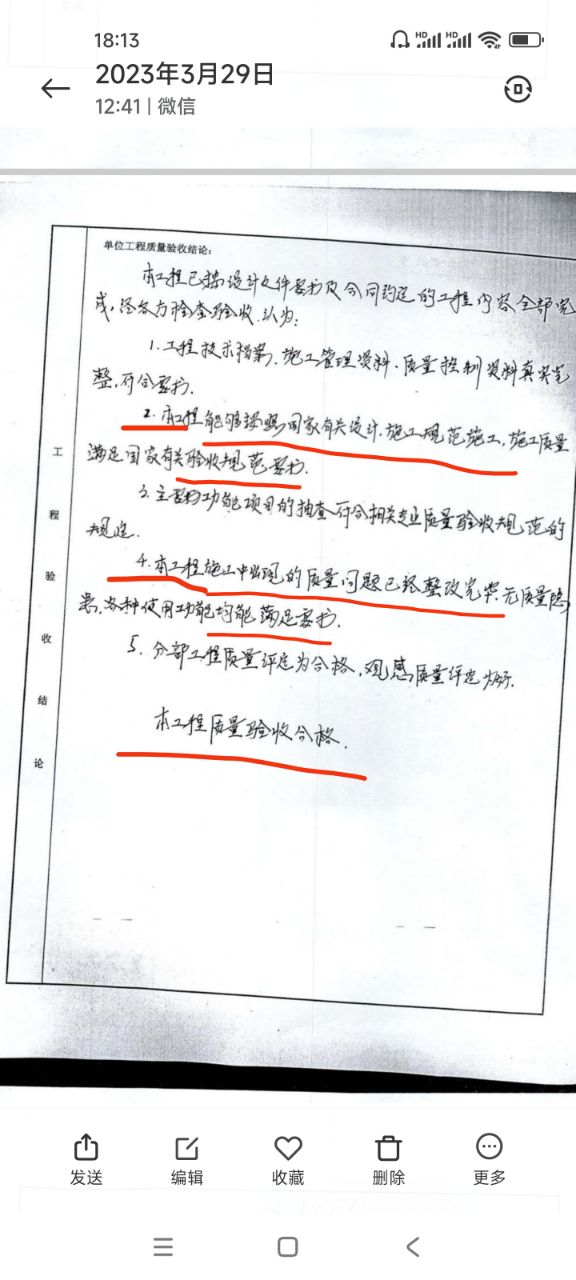 18:13
2023年3月29日
12:41 | 微信
单位工程质量验收结论:
本工程已按设计文件要求及合同约定的工程内容全部完
成,经各方检查验收,认为:
1.工程技术档案、施工管理资料、质量控制资料真实完
整,符合要求.
2.本工程能够按照国家有关设计、施工规范施工,施工质量
满足国家有关验收规范要求.
3.主要功能项目的抽查符合相关专业质量验收规范的
规定.
4.本工程施工中出现的质量问题已经整改完毕.无质量隐
患,各种使用功能均能满足要求.
5.分部工程质量评定为合格,观感质量评定为好.
本工程质量验收合格.
工程验收结论
发送 编辑 收藏 删除 更多